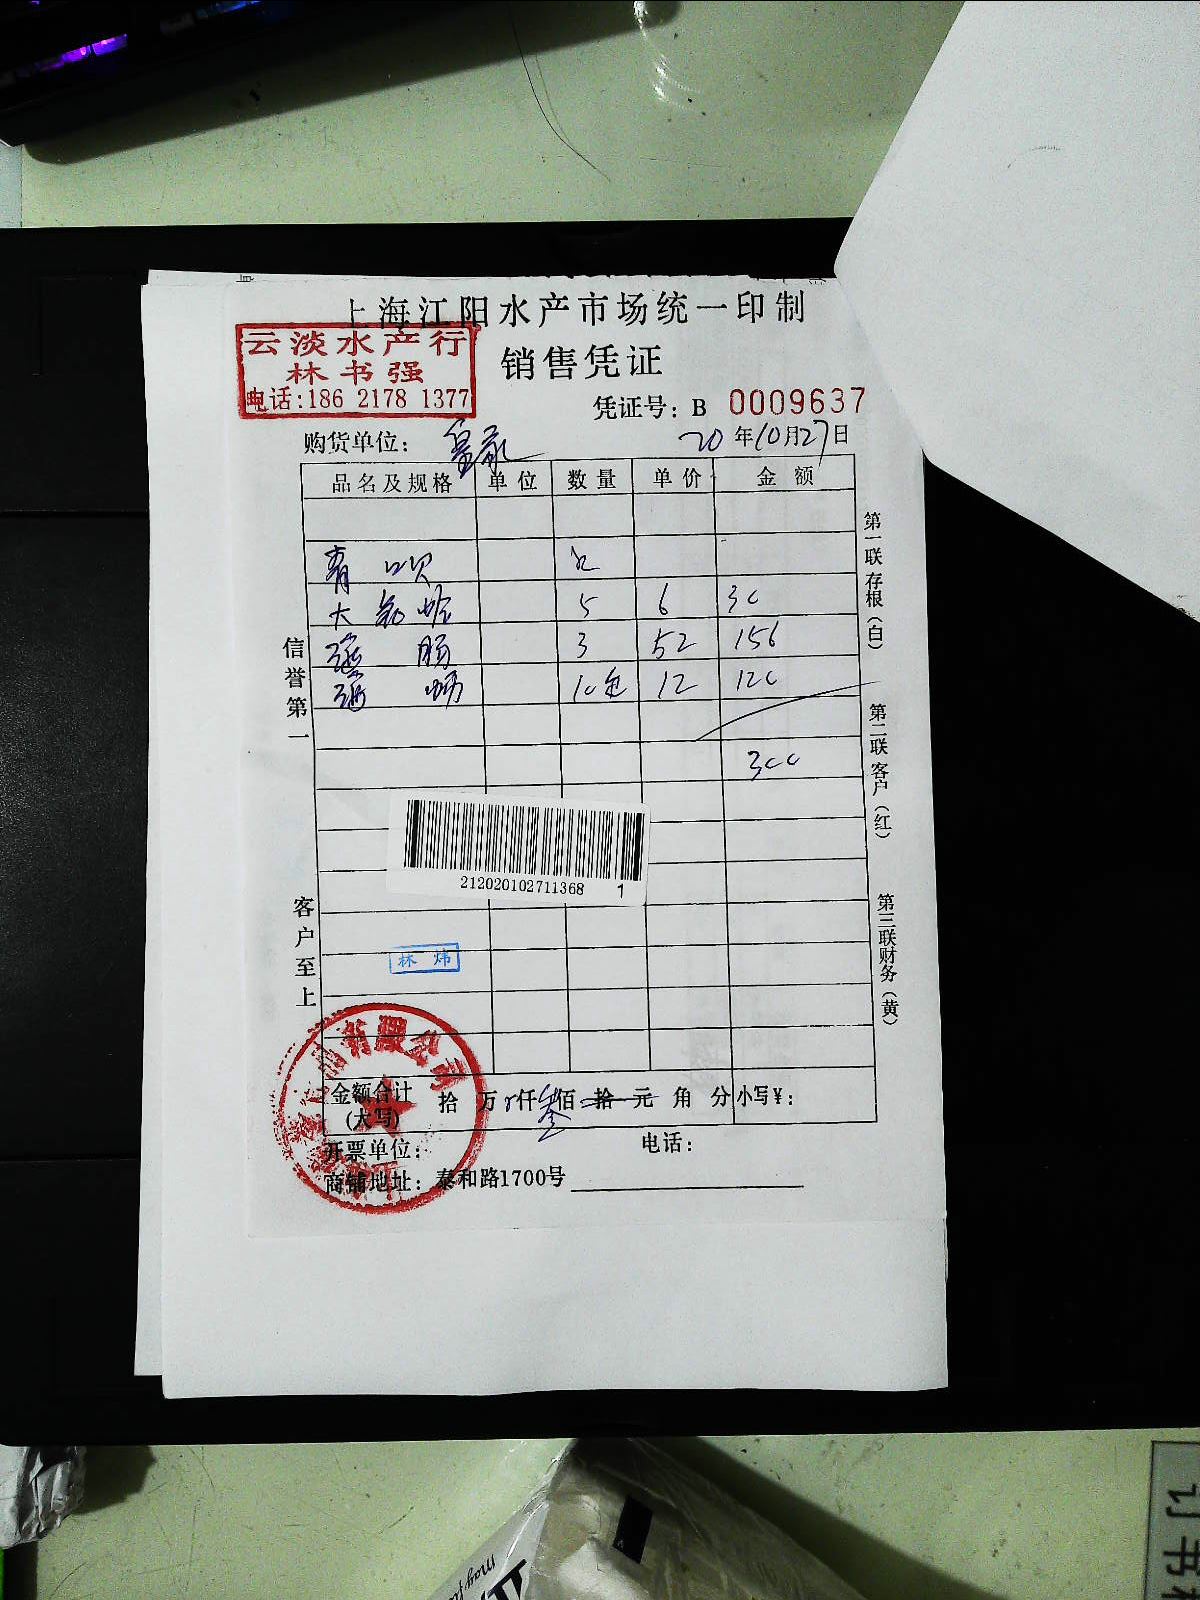 上海江阳水产市场统一印制
云淡水产行
林书强
电话:186 2178 1377
销售凭证
凭证号: B 0009637
购货单位:
20年10月27日
品名及规格 单位 数量 单价 金额
青
大 蛤 5 6 30
肠 3 52 156
10包 12 120
300
信誉第一
客户至上
第一联存根(白)
第二联客户(红)
第三联财务(黄)
212020102711368 1
林 炜
有限公司
金额合计(大写) 拾 万 仟 叁 佰 拾 元 角 分 小写¥:
开票单位: 电话:
商铺地址: 泰和路1700号
订书